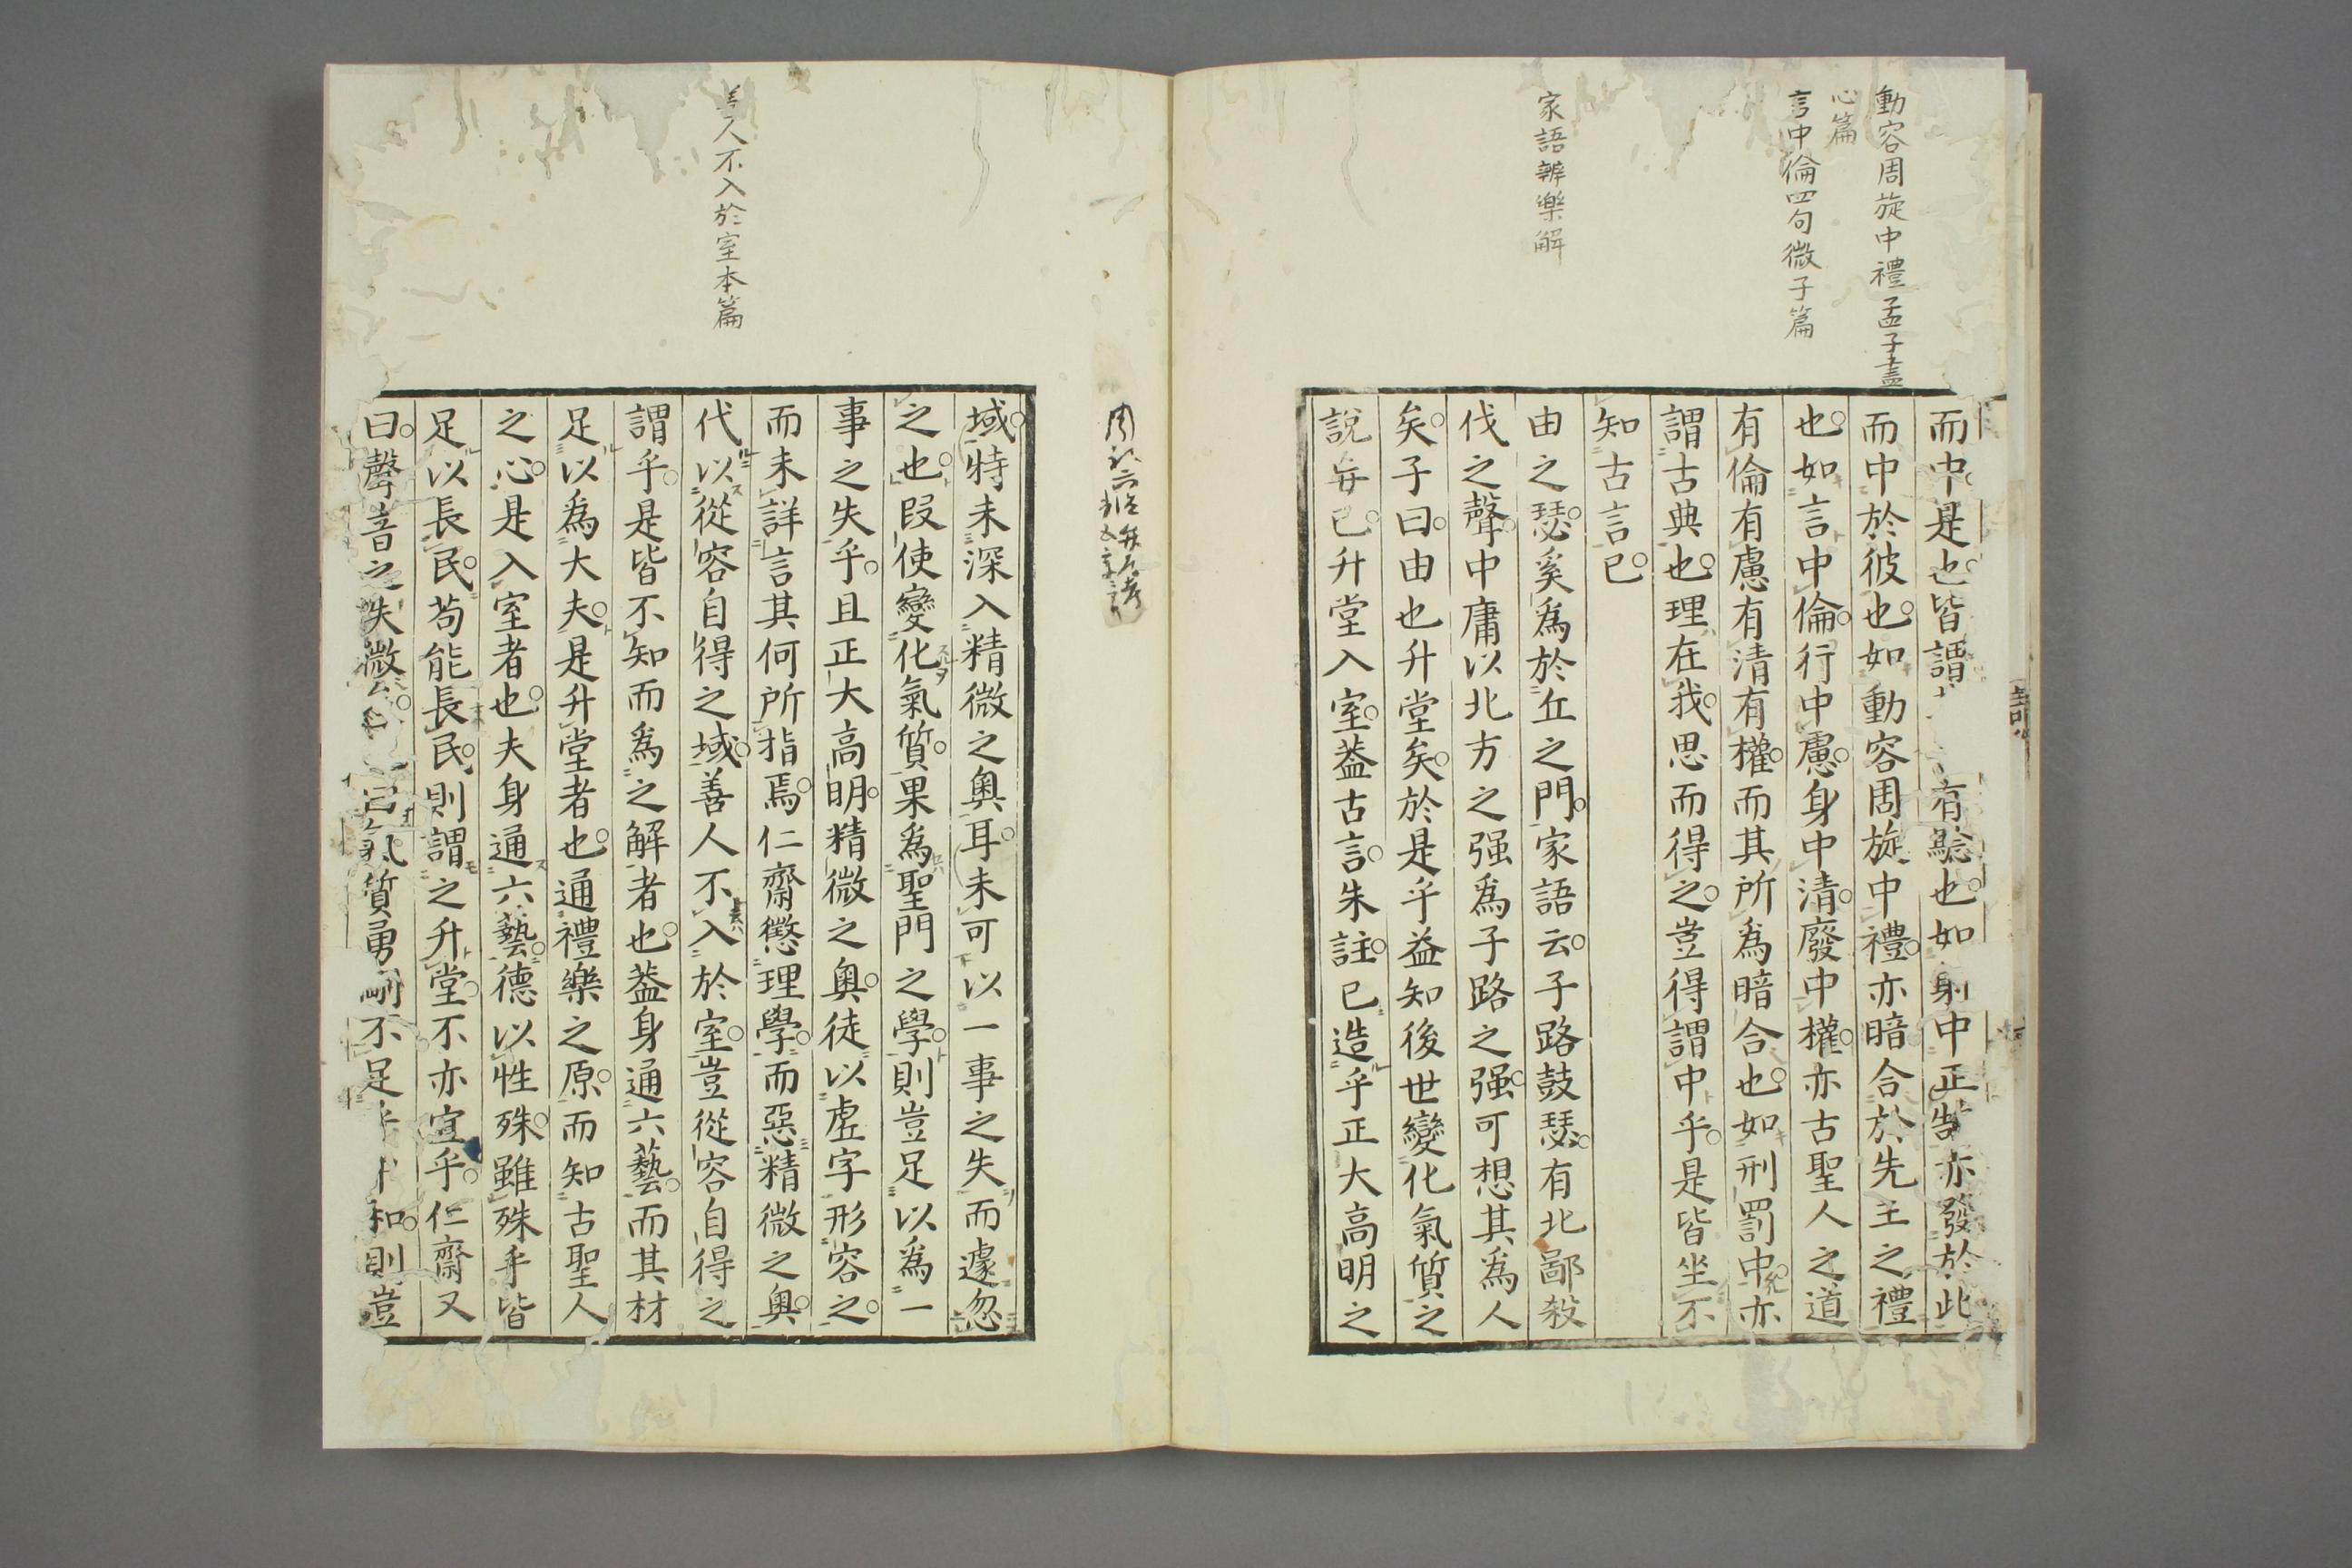 動容周旋中禮孟子盡
心篇
言中倫四句微子篇
家語辨樂解
而中是也皆謂有驗也如射中正鵠亦發於此
而中於彼也如動容周旋中禮亦暗合於先王之禮
也如言中倫行中慮身中清廢中權亦古聖人之道
有倫有慮有清有權而其所爲暗合也如刑罰中亦
謂古典也理在我思而得之豈得謂中乎是皆坐不
知古言已
由之瑟奚爲於丘之門家語云子路鼓瑟有北鄙殺
伐之聲中庸以北方之强爲子路之强可想其爲人
矣子曰由也升堂矣於是乎益知後世變化氣質之
說妄已升堂入室蓋古言朱註已造乎正大高明之
善人不入於室本篇
域特未深入精微之奧耳未可以一事之失而遽忽
之也叚使變化氣質果爲聖門之學則豈足以爲一
事之失乎且正大高明精微之奧徒以虛字形容之
而未詳言其何所指焉仁齋懲理學而惡精微之奧
代以從容自得之域善人不入於室豈從容自得之
謂乎是皆不知而爲之解者也蓋身通六藝而其材
足以爲大夫是升堂者也通禮樂之原而知古聖人
之心是入室者也夫身通六藝德以性殊雖殊乎皆
足以長民苟能長民則謂之升堂不亦宜乎仁齋又
曰聲音之失微矣氣質勇剛不足乎中和則豈